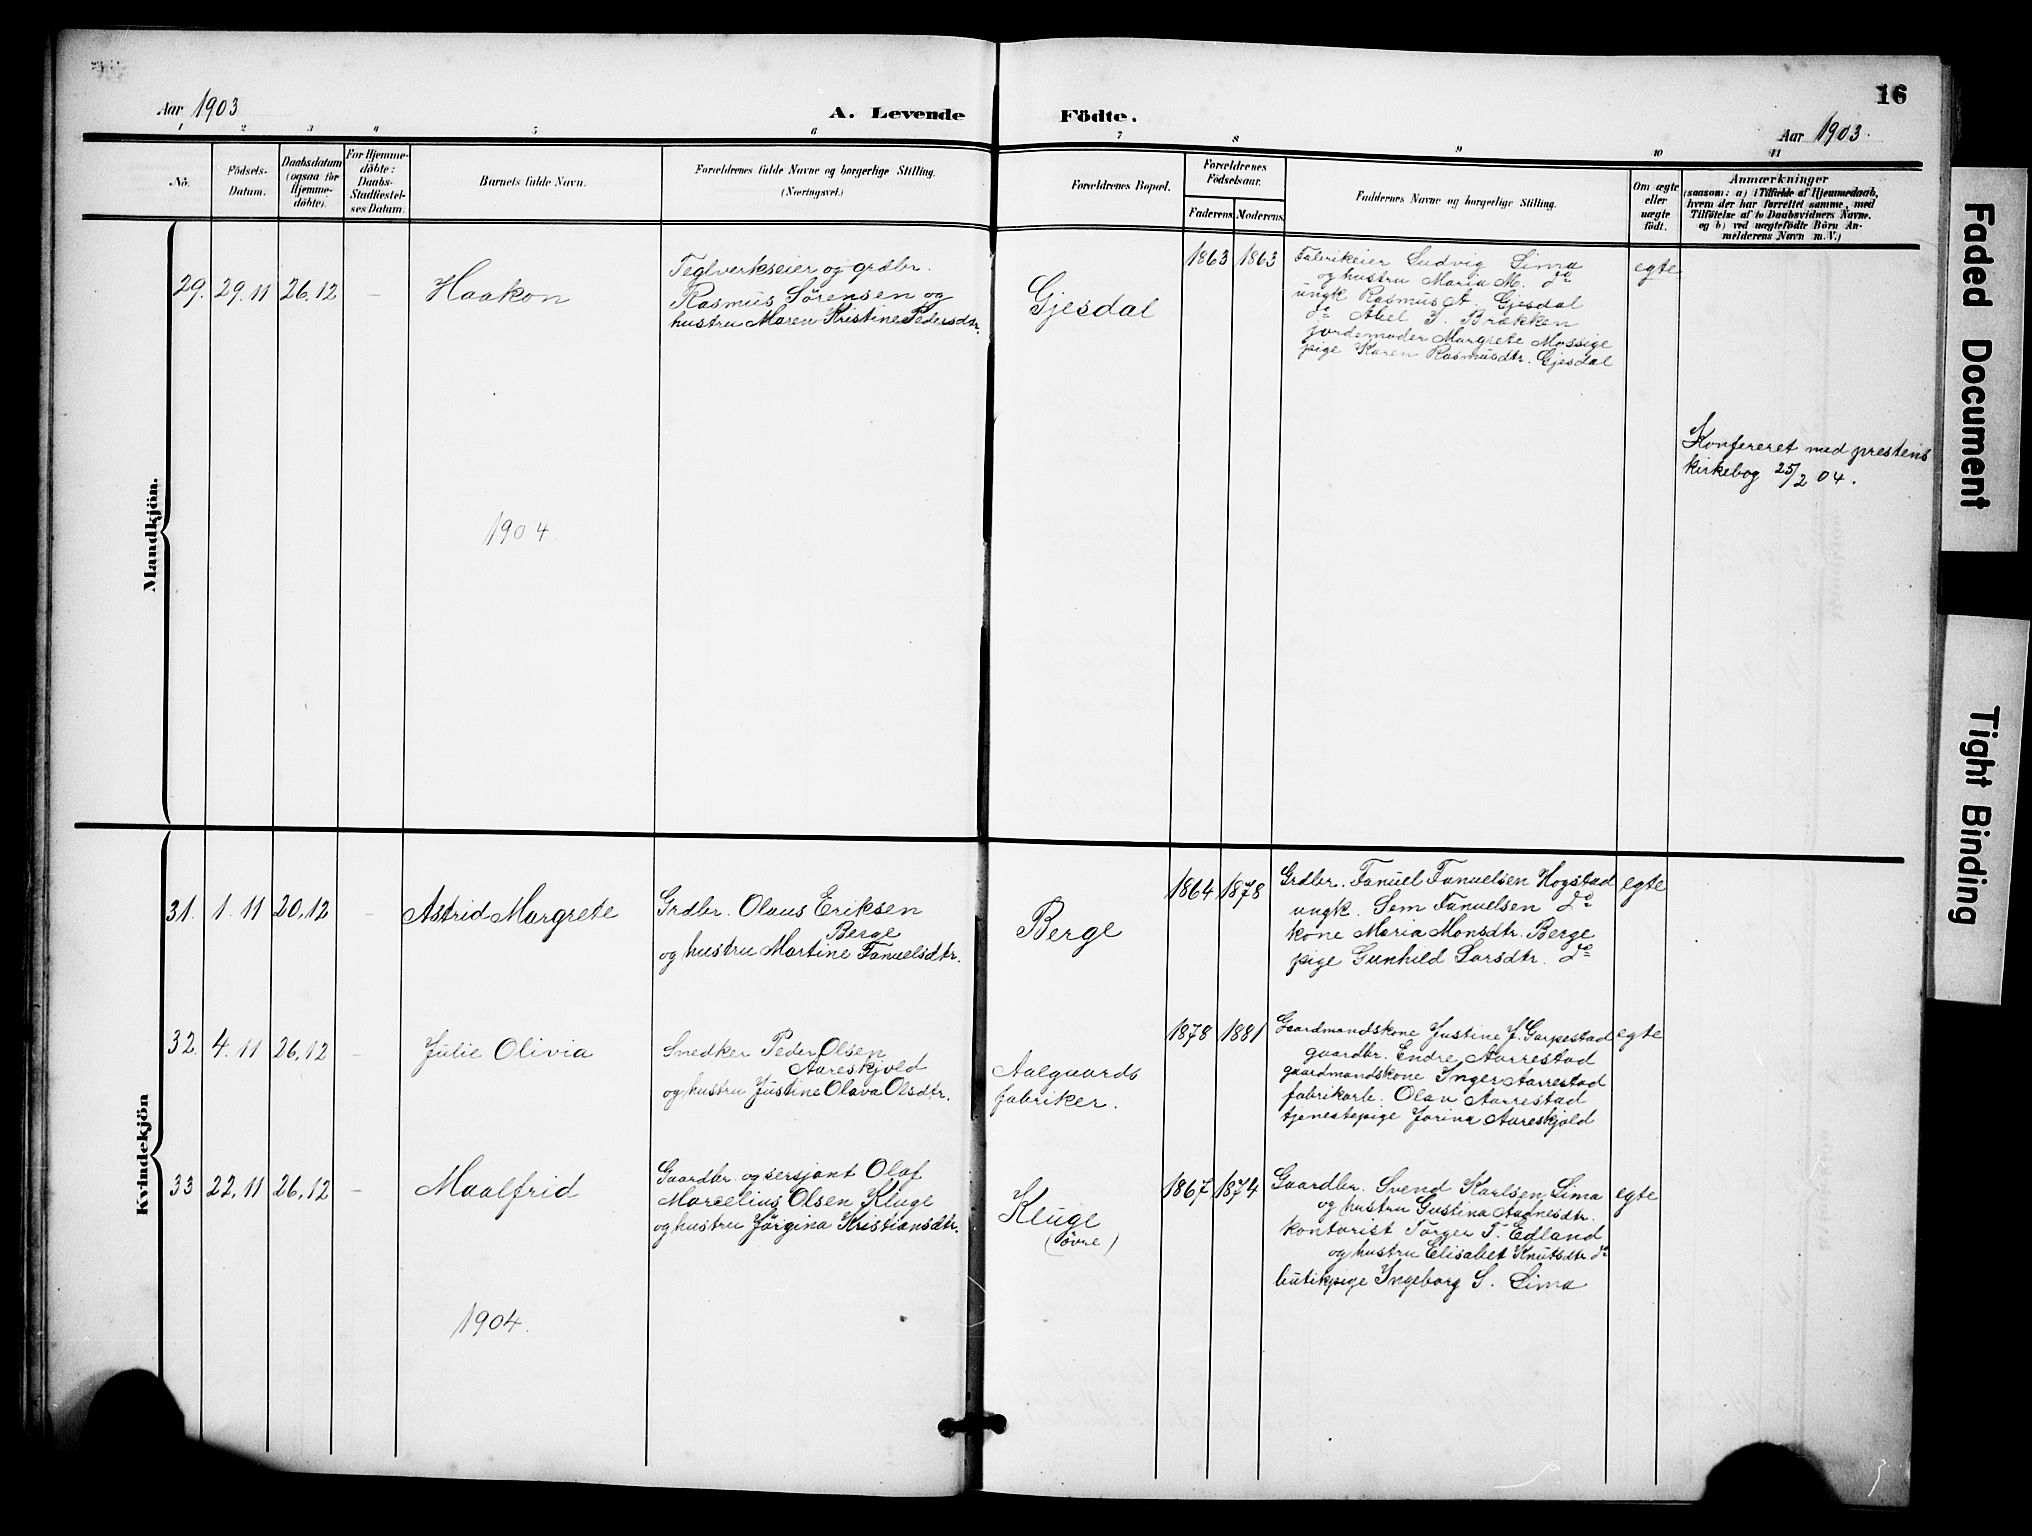 16
Aar 1903
A. Levende Födte.
Aar 1903.
1 2 3 4 5 6 7 8 9 10 11
No.
Födsels-
Datum.
Daabsdatum
(ogsaa for
Hjemme-
döbte).
For Hjemme-
döbte:
Daabs-
Stadfæstel-
ses Datum.
Barnets fulde Navn.
Forældrenes fulde Navne og borgerlige Stilling.
(Næringsvei.)
Forældrenes Bopæl.
Forældrenes
Födselsaar.
Faderens Moderens
Faddernes Navne og borgerlige Stilling.
Om ægte
eller
uægte
födt.
Anmærkninger
(saasom: a) i Tilfælde af Hjemmedaab,
hvem der har forrettet samme, med
Tilföielse af to Daabsvidners Navne.
og b) ved uægtefödte Börn An-
melderens Navn m. V.)
Mandkjön.
29. 29.11 26.12 — Haakon
Teglverkseier og grdbr.
Rasmus Sörensen og
hustru Maren Kristine Pedersdtr.
Gjesdal
1863 1863
Fabrikeier Ludvig Lima
og hustru Maria M. do
ungk Rasmus A. Gjesdal
do Abel T. Brækken
jordemoder Margrete Mossige
pige Karen Rasmusdtr. Gjesdal
egte
Konfereret med prestens
kirkebog 25/2 04.
1904.
Kvindekjön
31. 1.11 20.12 — Astrid Margrete
Grdbr. Olaus Eriksen
Berge
og hustru Martine Fanuelsdtr.
Berge
1864 1878
Grdbr. Fanuel Fanuelsen Hogstad
ungk. Sem Fanuelsen do
kone Maria Monsdtr. Berge
pige Gunhild Larsdtr. do
egte
32. 4.11 26.12 — Julie Olivia
Snedker Peder Olsen
Aareskjold
og hustru Justine Olava Olsdtr.
Aalgaards
fabriker.
1878 1881
Gaardmandskone Justine J. Garpestad
gaardbr. Endre Aarrestad
gaardmandskone Inger Aarrestad
fabrikarb. Olav Aarrestad
tjenestepige Jorina Aareskjold
egte
33 22.11 26.12 — Maalfrid
Gaardbr. og sersjant Olaf
Marcelius Olsen Kluge
og hustru Jörgina Kristiansdtr.
Kluge
(övre)
1867 1874
Gaardbr. Svend Karlsen Lima
og hustru Gustina Aadnesdtr.
kontorist Törger T. Edland
og hustru Elisabet Knutsdtr do
butikpige Ingeborg S. Lima
egte
1904.
Faded Document
Tight Binding